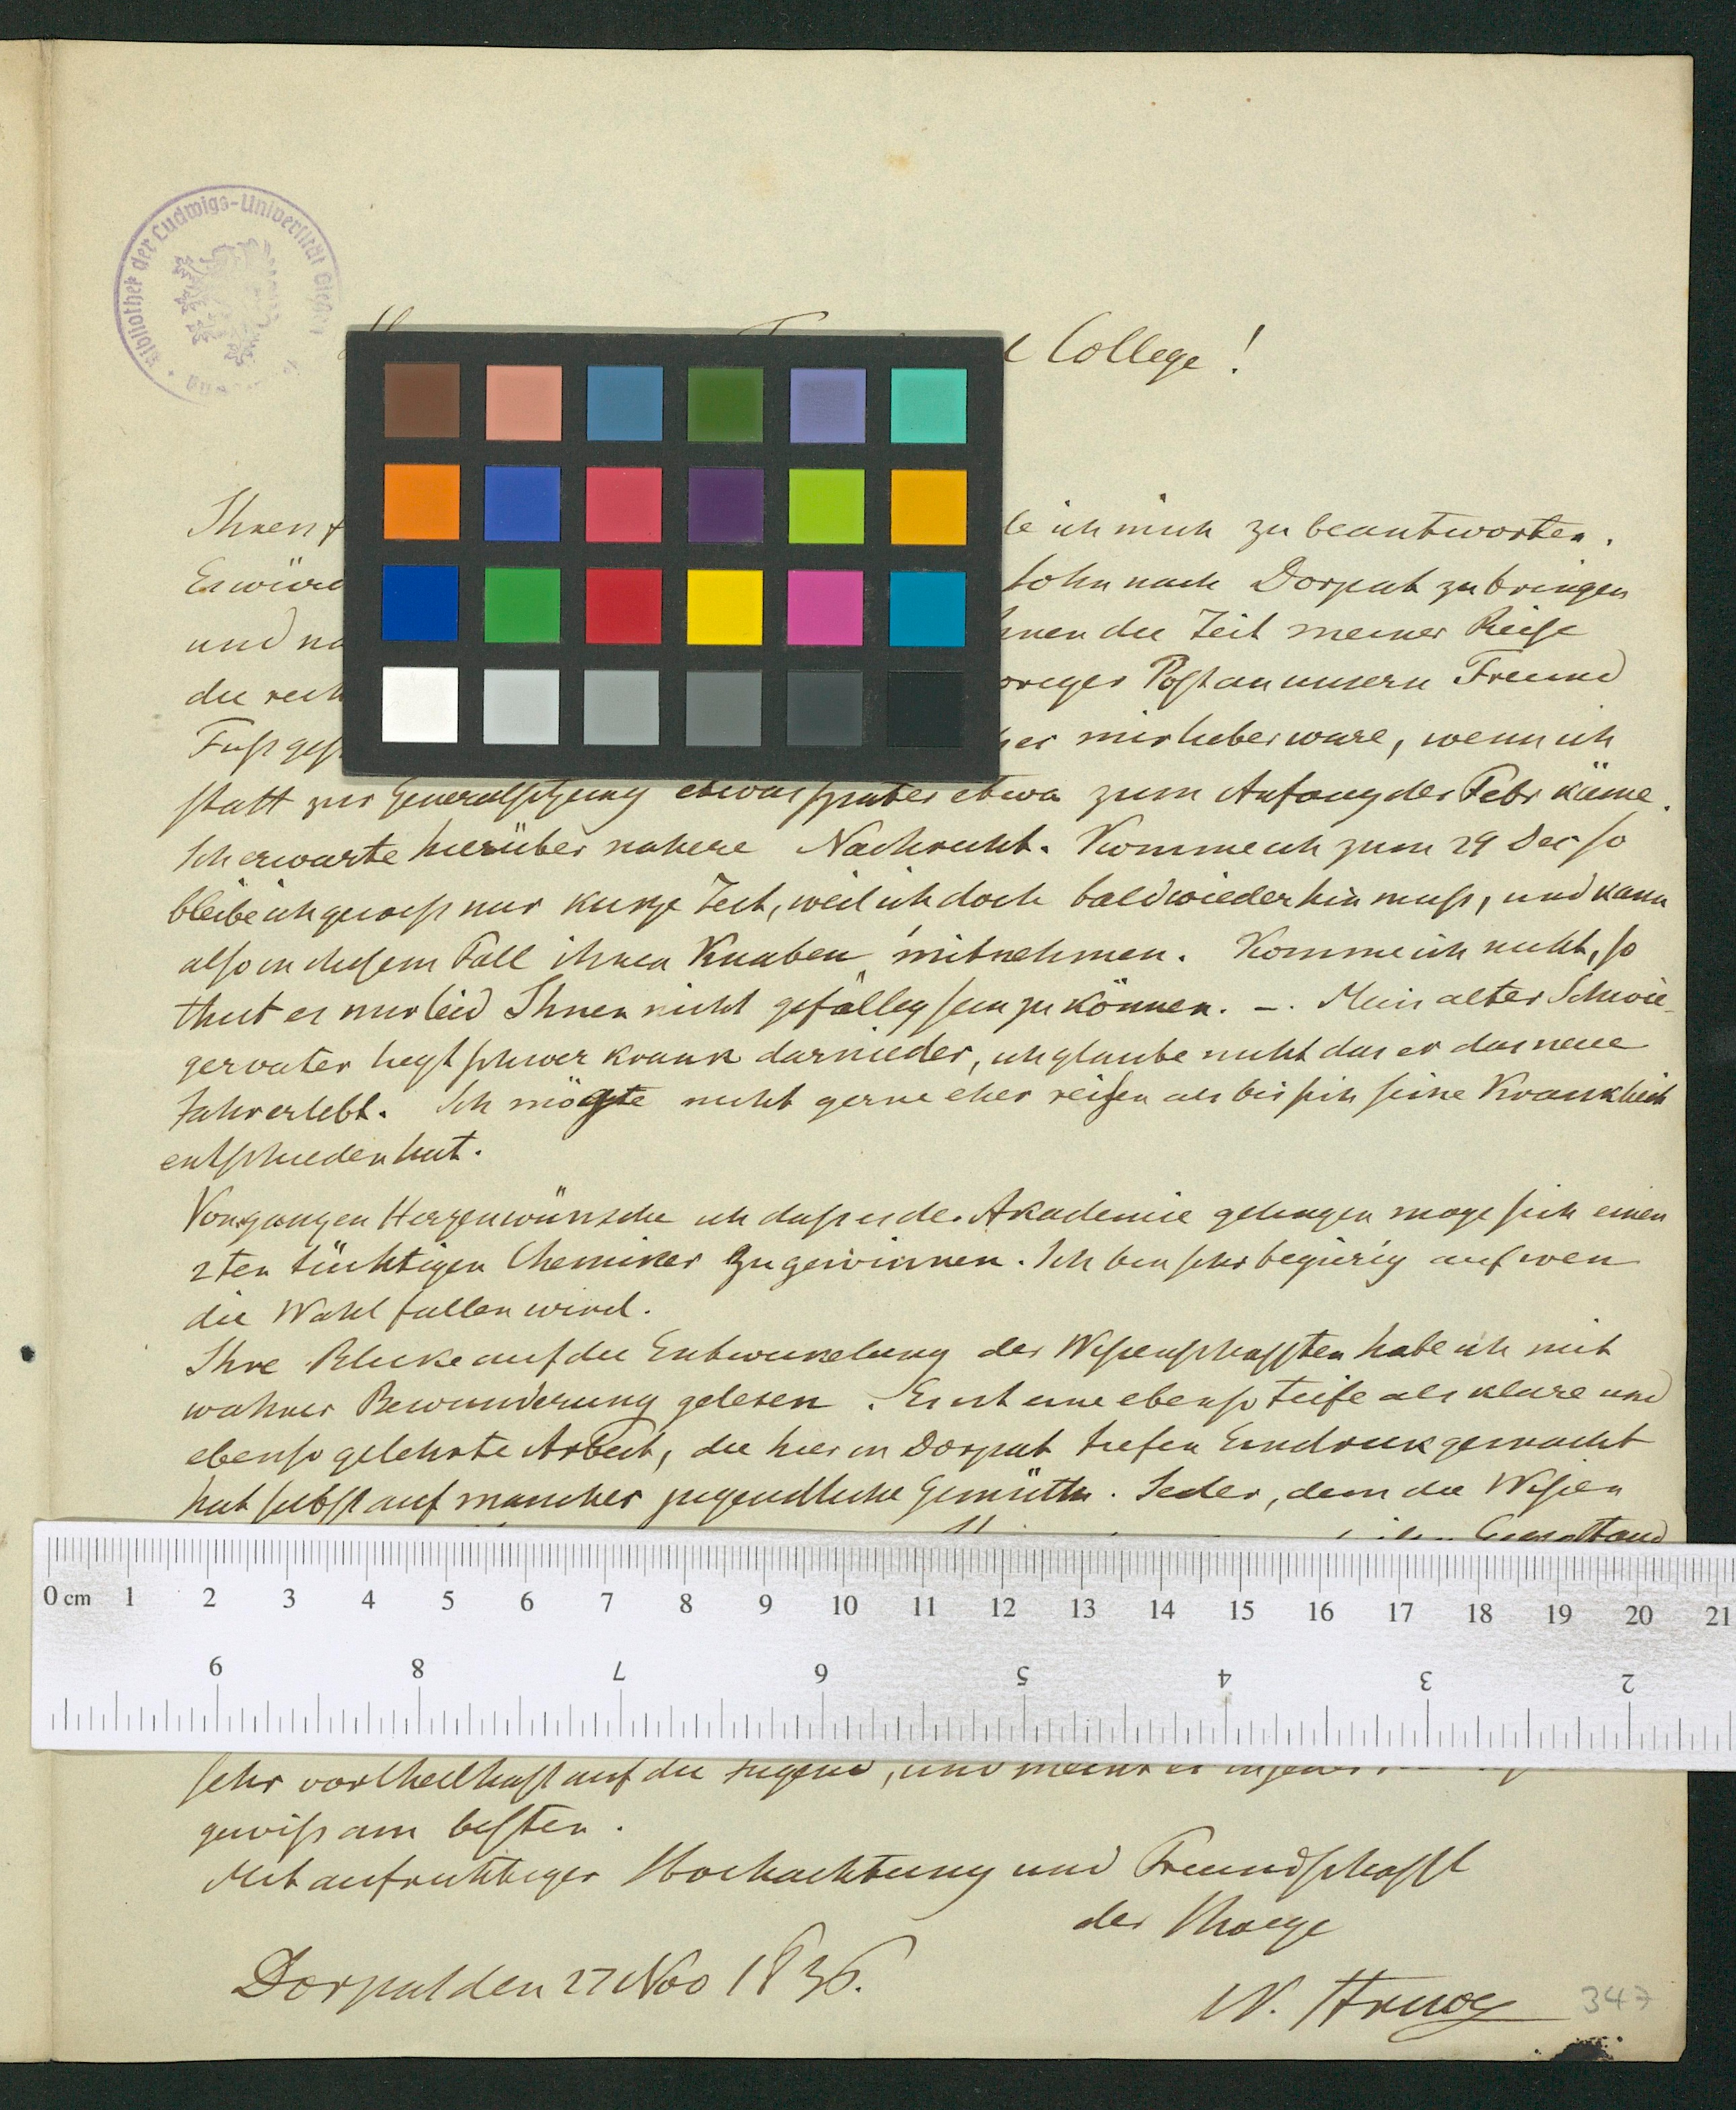 Bibliothek der Ludwigs-Universität Gießen
College!
Ihren ich mich zu beantworten.
Sohn nach Dorpat zu bringen
und die Zeit meiner Reise
die Post an unsern Freund
Fuß mir lieber ware, wenn ich
statt zur Generalsitzung etwas später etwa zum Anfang des Febr käme.
Ich erwarte hierüber nahere Nachricht. Komme ich zum 29 Dec so
bleibe ich gewiss nur kurze Zeit, weil ich doch bald wieder hin muß, und kann
also in diesem Fall ihren Knaben mitnehmen. Komme ich nicht, so
thut es mir leid Ihnen nicht gefällig sein zu können. –. Mein alter Schwie-
gervater liegt schwer krank darnieder, ich glaube nicht das er das neue
Jahr erlebt. Ich mögte nicht gerne eher reisen als bis sich seine Krankheit
entschieden hat.
Von ganzen Herzen wünsche ich daß es der Akademie gelingen moge sich einen
2ten tüchtigen Chemiker zu gewinnen. Ich bin sehr begierig auf wen
die Wahl fallen wird.
Ihre Blicke auf die Entwickelung der Wissenschafften habe ich mit
wahrer Bewunderung gelesen. Es ist eine ebenso tiefe als klare und
ebenso gelehrte Arbeit, die hier in Dorpat tiefen Eindruck gemacht
hat selbst auf manches jugendliche Gemüth. Jeder, dem die Wissen
sehr vortheilhaft auf die Jugend, und
gewiß am besten.
Mit aufrichtiger Hochachtung und Freundschafft
der Ihrige
Dorpat den 27 Nov 1836.
W. Struve
347
0 cm 1 2 3 4 5 6 7 8 9 10 11 12 13 14 15 16 17 18 19 20 21
9 8 7 6 5 4 3 2